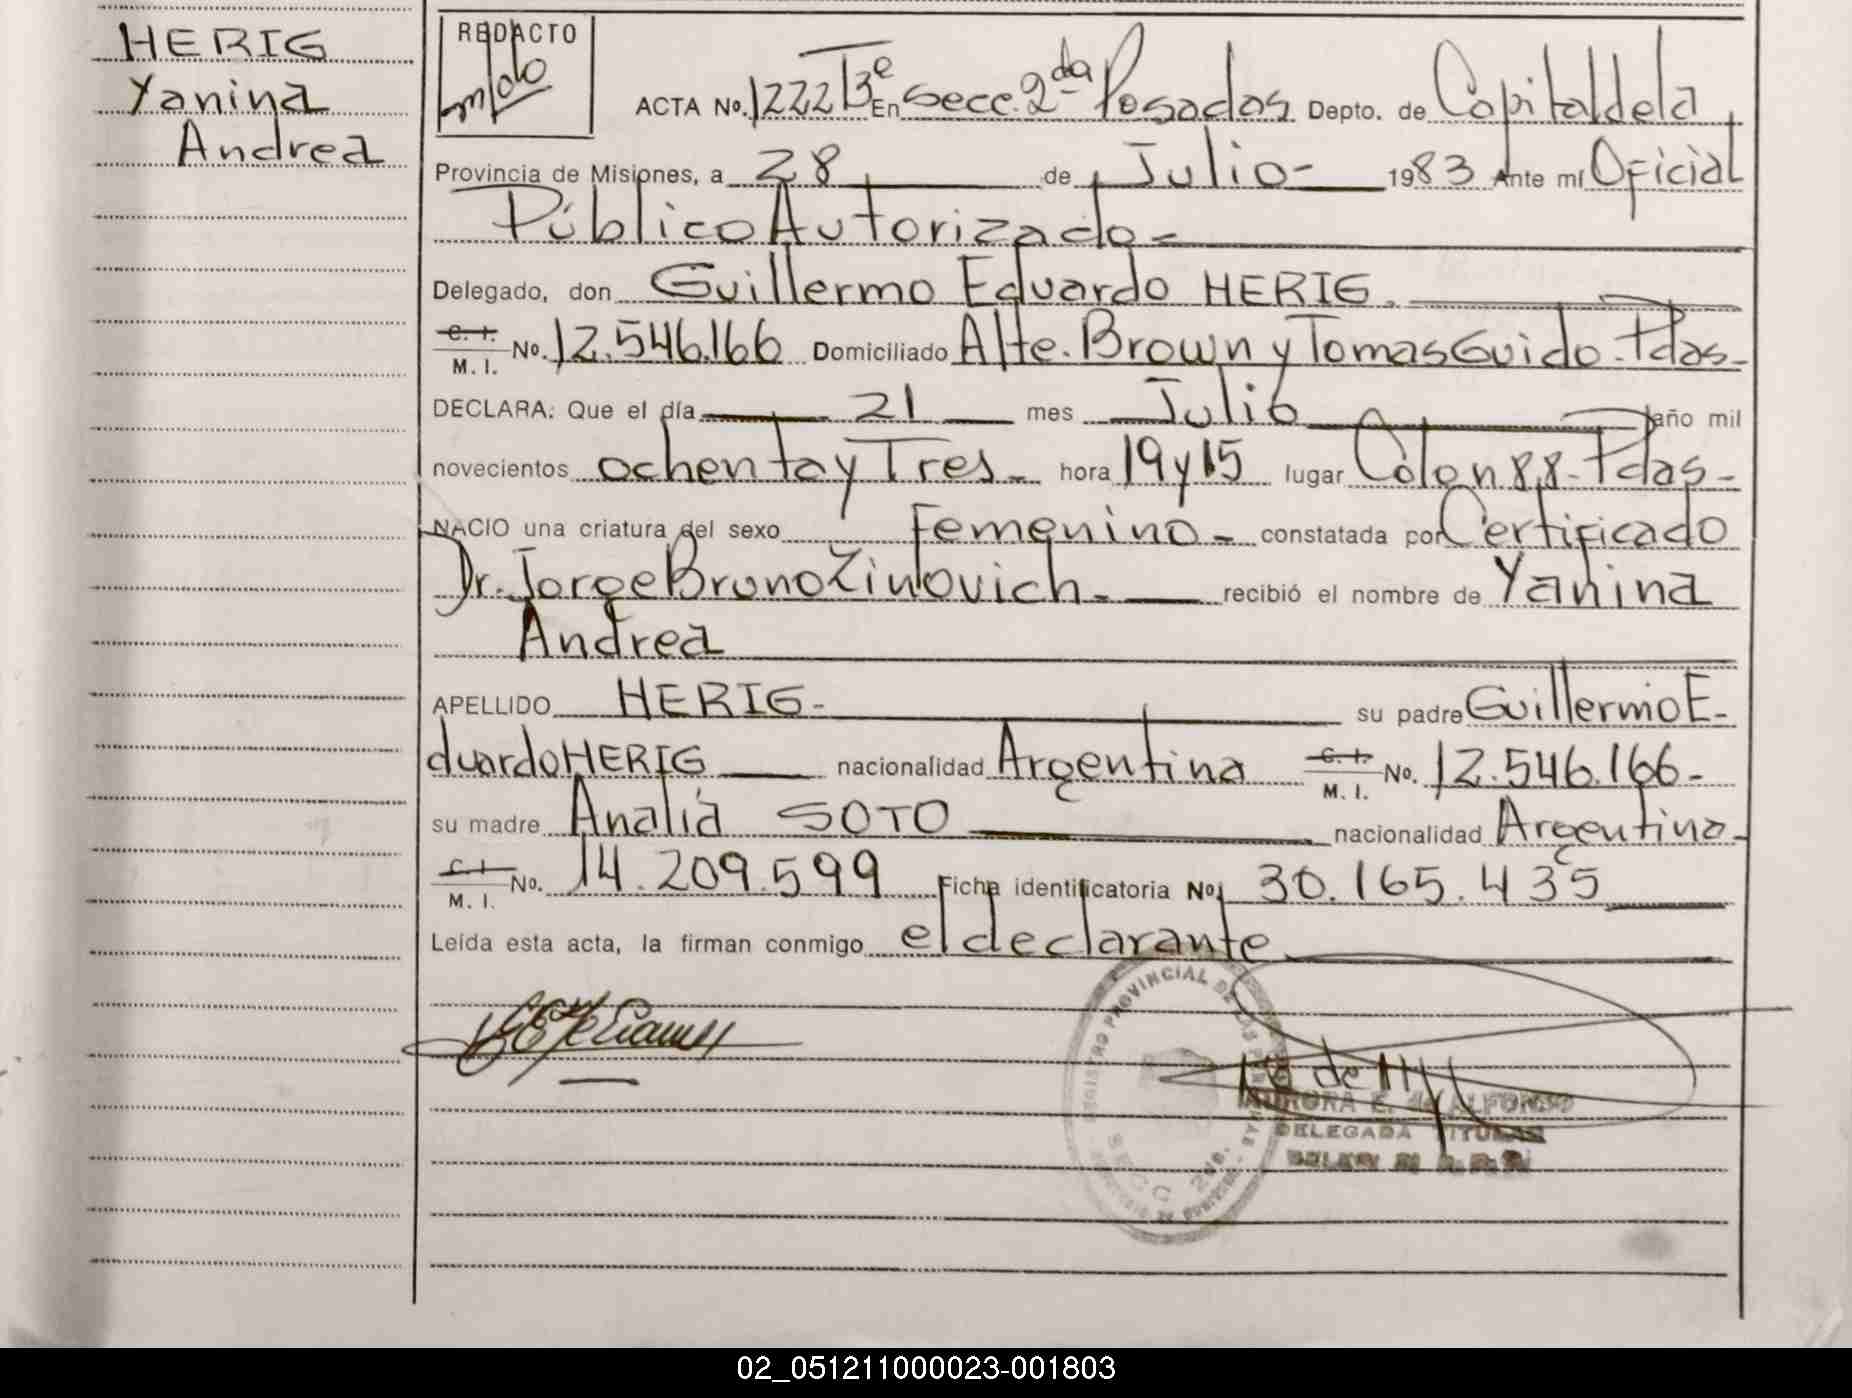 HERIG
Yanina
Andrea
REDACTO
ACTA No. 1222 T3e En Secc. 2da Posadas Depto. de Capital de la
Provincia de Misiones, a 28 de Julio - 1983 Ante mí Oficial
Público Autorizado -
Delegado, don Guillermo Eduardo HERIG.
C. I.
M. I. No. 12.546.166 Domiciliado Alte. Brown y Tomas Guido - Pdas -
DECLARA: Que el día 21 mes Julio año mil
novecientos ochenta y Tres - hora 19 y 15 lugar Colon 88 - Pdas -
NACIO una criatura del sexo Femenino - constatada por Certificado
Dr. Jorge Bruno Zinovich - recibió el nombre de Yanina
Andrea
APELLIDO HERIG - su padre Guillermo E-
duardo HERIG nacionalidad Argentina C. I. M. I. No. 12.546.166 -
su madre Analia SOTO nacionalidad Argentina -
C. I. M. I. No. 14.209.599 Ficha identificatoria No. 30.165.435
Leída esta acta, la firman conmigo el declarante
REGISTRO PROVINCIAL DE LAS PERSONAS
SECC 2da.
AURORA E. de ALFONSO
DELEGADA TITULAR
02_051211000023-001803